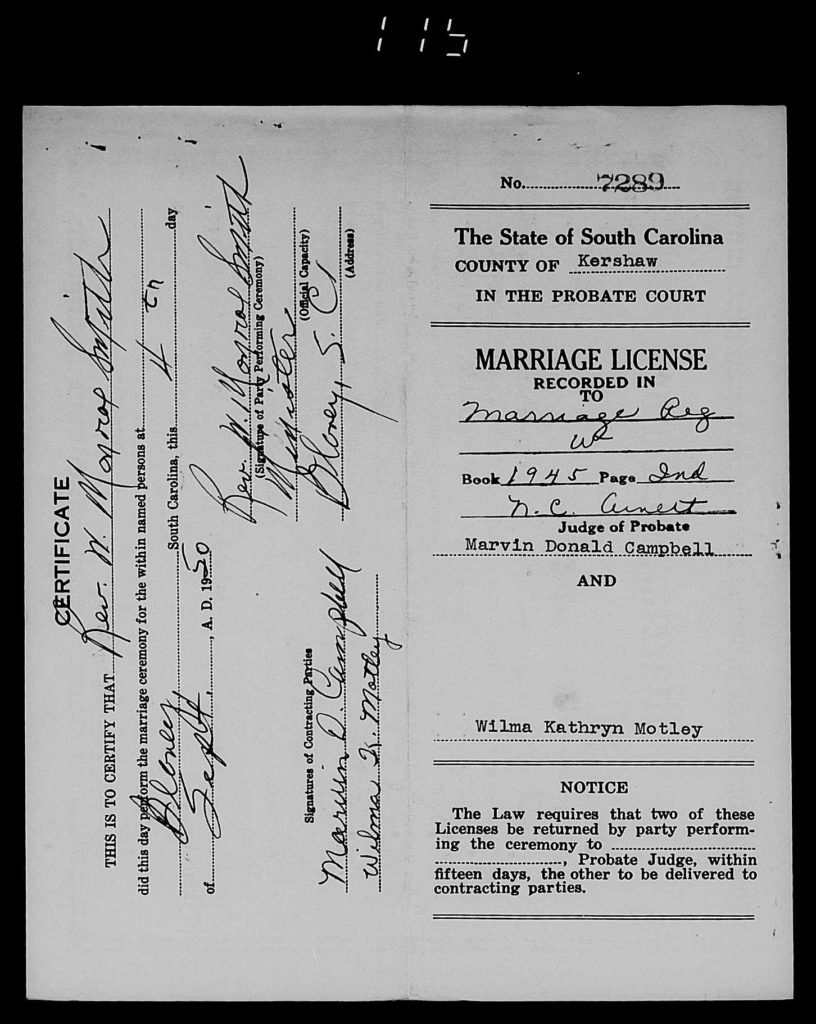 115
CERTIFICATE
THIS IS TO CERTIFY THAT Rev. W. Monroe Smith
did this day perform the marriage ceremony for the within named persons at
Blaney, South Carolina, this 4 th day
of Sept., A. D. 1950
Rev. W. Monroe Smith
(Signature of Party Performing Ceremony)
Minister
(Official Capacity)
Blaney, S. C.
(Address)
Signatures of Contracting Parties
Marvin D. Campbell
Wilma K. Motley
No. 7289
The State of South Carolina
COUNTY OF Kershaw
IN THE PROBATE COURT
MARRIAGE LICENSE
RECORDED IN
TO
Marriage Reg
W
Book 1945 Page Ind
N. C. Arnett
Judge of Probate
Marvin Donald Campbell
AND
Wilma Kathryn Motley
NOTICE
The Law requires that two of these
Licenses be returned by party perform-
ing the ceremony to
, Probate Judge, within
fifteen days, the other to be delivered to
contracting parties.